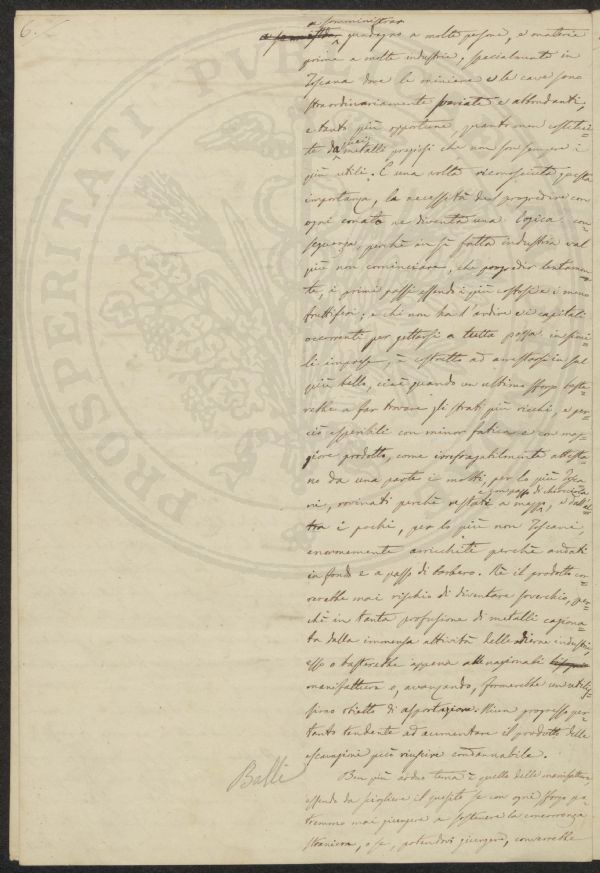 6.
a somministrar
guadagno a molte persone, e materie
prime a molte industrie, specialmente in
Toscana dove le miniere e le cave sono
straordinariamente svariate e abbondanti,
e tanto più opportune, quanto men costitui=
te da quei metalli preziosi che non son sempre i
più utili. E una volta riconosciuta questa
importanza, la necessità di progredire con
ogni conato ne diventa una logica con=
seguenza, perchè in sì fatta industria val
più non cominciare, che progredir lentamen=
te, i primi passi essendo i più costosi e i meno
fruttiferi; e chi non ha l'ardire e i capitali
occorrenti per gettarsi a tutta possa in simi=
li imprese, è costretto ad arrestarsi in sul
più bello, cioè quando un ultimo sforzo baste=
rebbe a far trovare gli strati più ricchi, e per=
ciò esperibili con minor fatica e con mag=
giore prodotto, come irrefragabilmente attesta=
no da una parte i molti, per lo più Tosca=
ni, rovinati perchè restati a mezzo, e con passo di chiocciola, e dall'al=
tra i pochi, per lo più non Toscani,
enormemente arricchiti perchè andati
in fondo e a passo di barbero. Nè il prodotto cor=
rerebbe mai rischio di diventare soverchio, per=
chè in tanta profusione di metalli cagiona=
ta dalla immensa attività delle odierne industrie,
esso o basterebbe appena alle nazionali
manifatture o, avanzando, formerebbe un utilis=
simo obietto di asportazione. Niun progresso per=
tanto tendente ad aumentare il prodotto delle
escavazioni può riuscire condannabile.
Ben più arduo tema è quello delle manifatture,
essendo da sciogliere il quesito se con ogni sforzo po=
tremmo mai giungere a sostenere la concorrenza
straniera, o se, potendovi giungere, converrebbe
Balli
PROSPERITATI PUBLICAE